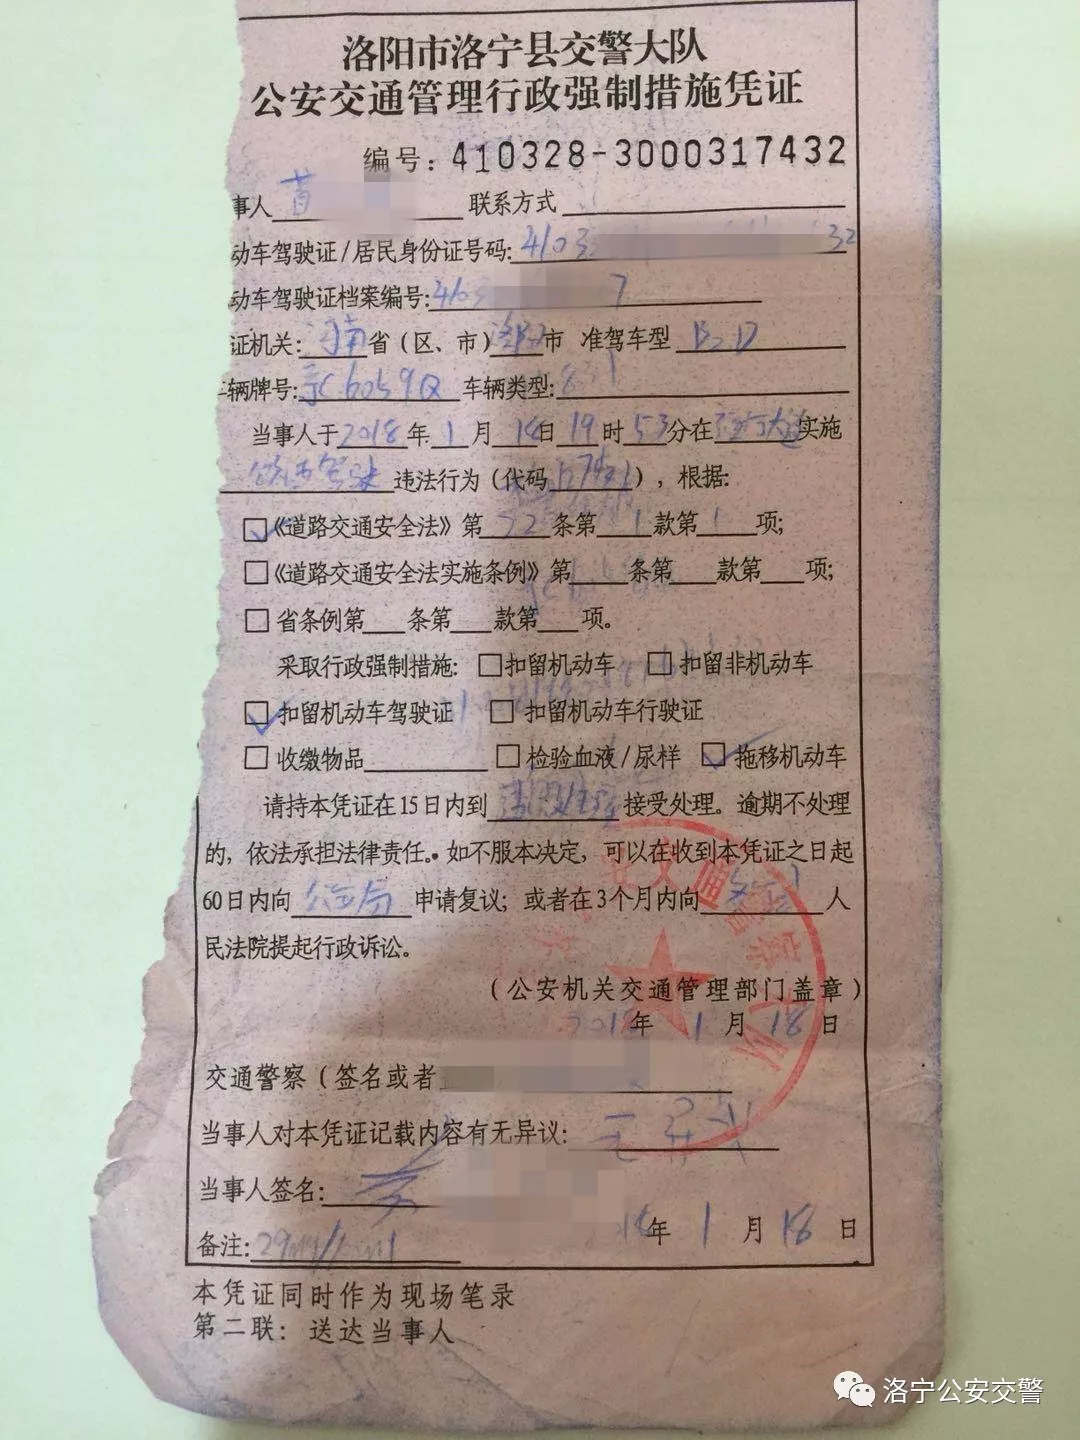 洛阳市洛宁县交警大队
公安交通管理行政强制措施凭证
编号：410328-3000317432
事人 联系方式
动车驾驶证/居民身份证号码: 410 32
动车驾驶证档案编号: 7
证机关: 河南省（区、市）洛阳市 准驾车型 B2D
车辆牌号: 6059Q 车辆类型:
当事人于2018年1月18日19时53分在 实施
违法行为（代码 ），根据:
《道路交通安全法》第 条第1款第1项;
《道路交通安全法实施条例》第 条第 款第 项;
省条例第 条第 款第 项。
采取行政强制措施: 扣留机动车 扣留非机动车
扣留机动车驾驶证 扣留机动车行驶证
收缴物品 检验血液/尿样 拖移机动车
请持本凭证在15日内到 接受处理。逾期不处理
的，依法承担法律责任。如不服本决定，可以在收到本凭证之日起
60日内向公安局申请复议；或者在3个月内向 人
民法院提起行政诉讼。
（公安机关交通管理部门盖章）
2018年1月18日
交通警察（签名或者
当事人对本凭证记载内容有无异议: 无异议
当事人签名:
18年1月18日
备注:
本凭证同时作为现场笔录
第二联：送达当事人
洛宁公安交警